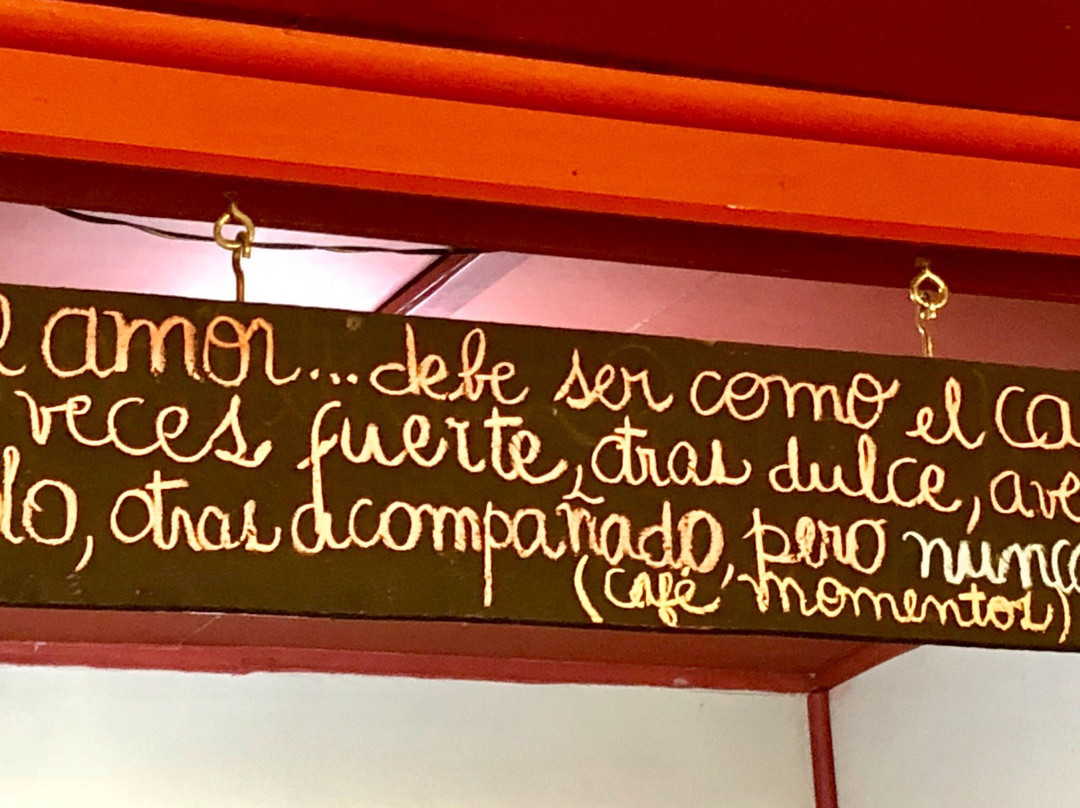 l amor... debe ser como el ca
veces fuerte, otras dulce, ave
lo, otras acompañado, pero nunca
(café momentos)